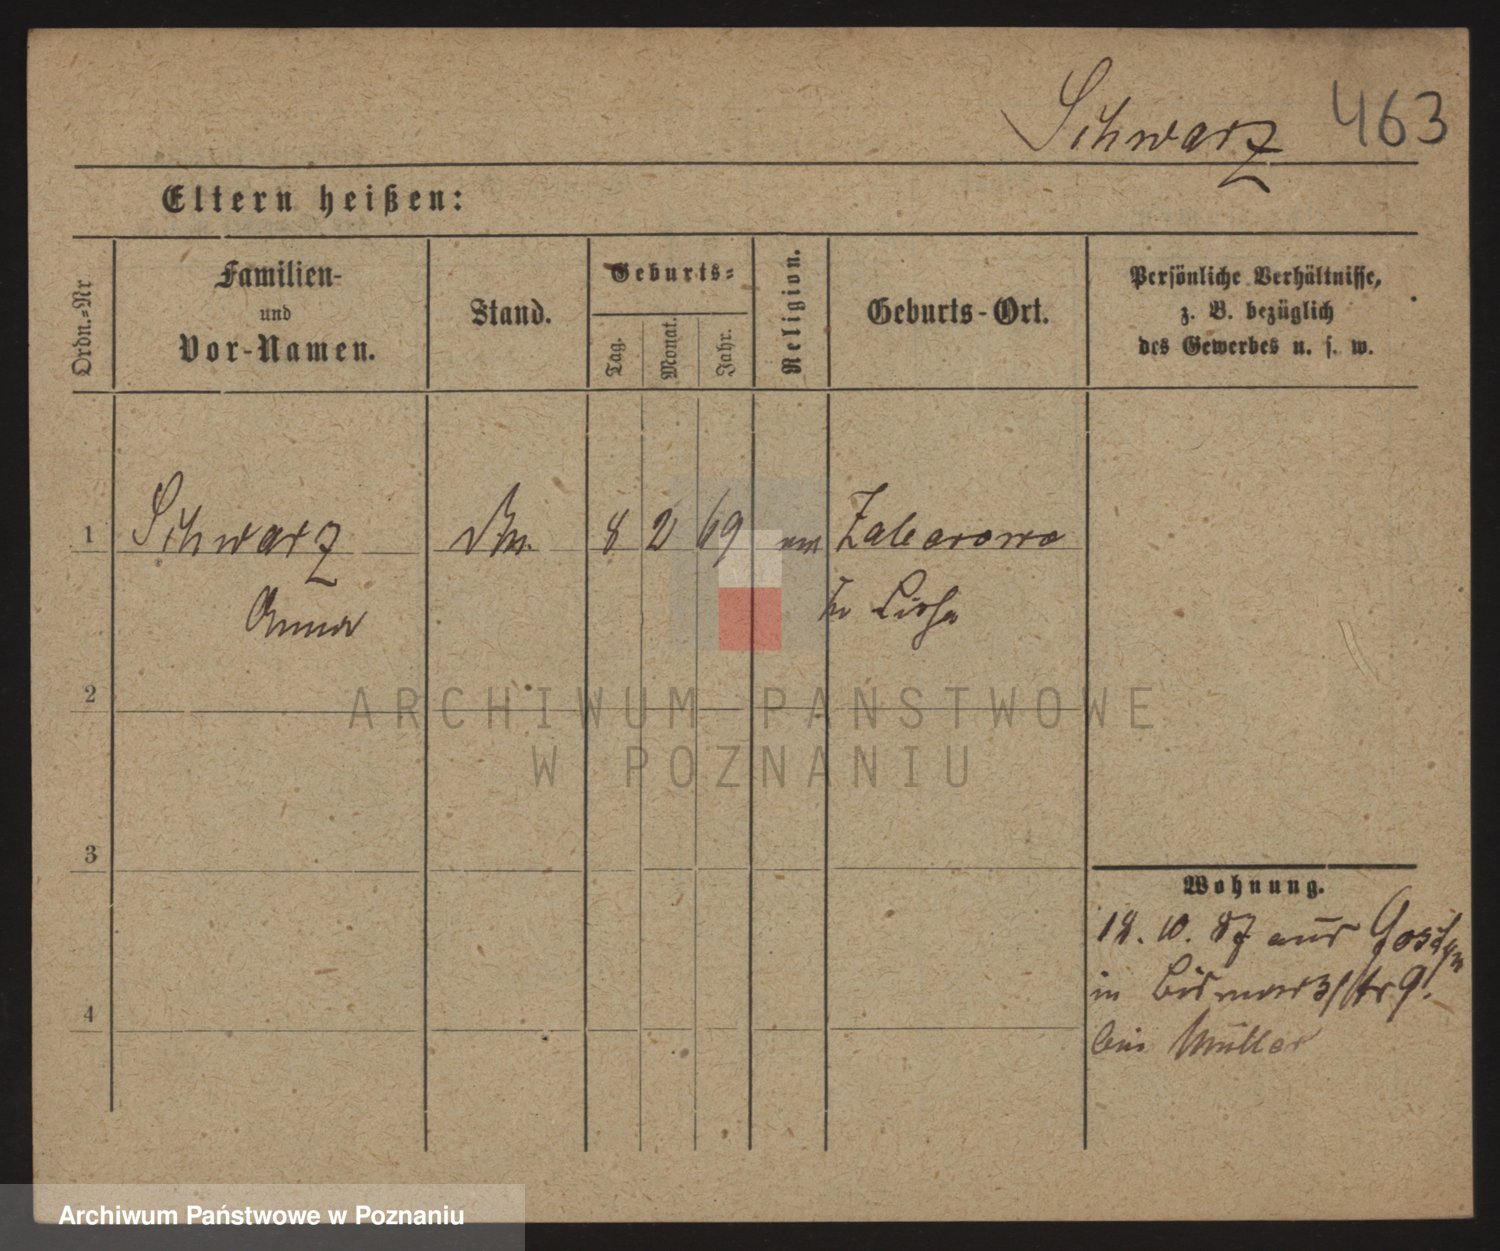 Schwarz 463
Eltern heißen:
Ordn.=Nr
Familien-
und
Vor-Namen.
Stand.
Geburts=
Tag.
Monat.
Jahr.
Religion.
Geburts-Ort.
Persönliche Verhältnisse,
z. B. bezüglich
des Gewerbes u. s. w.
1 Schwarz 8 2 69 Zaborowo
Anna Kr Lissa
2
ARCHIWUM PAŃSTWOWE
W POZNANIU
3
4
Wohnung.
18. 10. 87 aus Gostyn
in Bismarckstr 9.
bei Müller
Archiwum Państwowe w Poznaniu